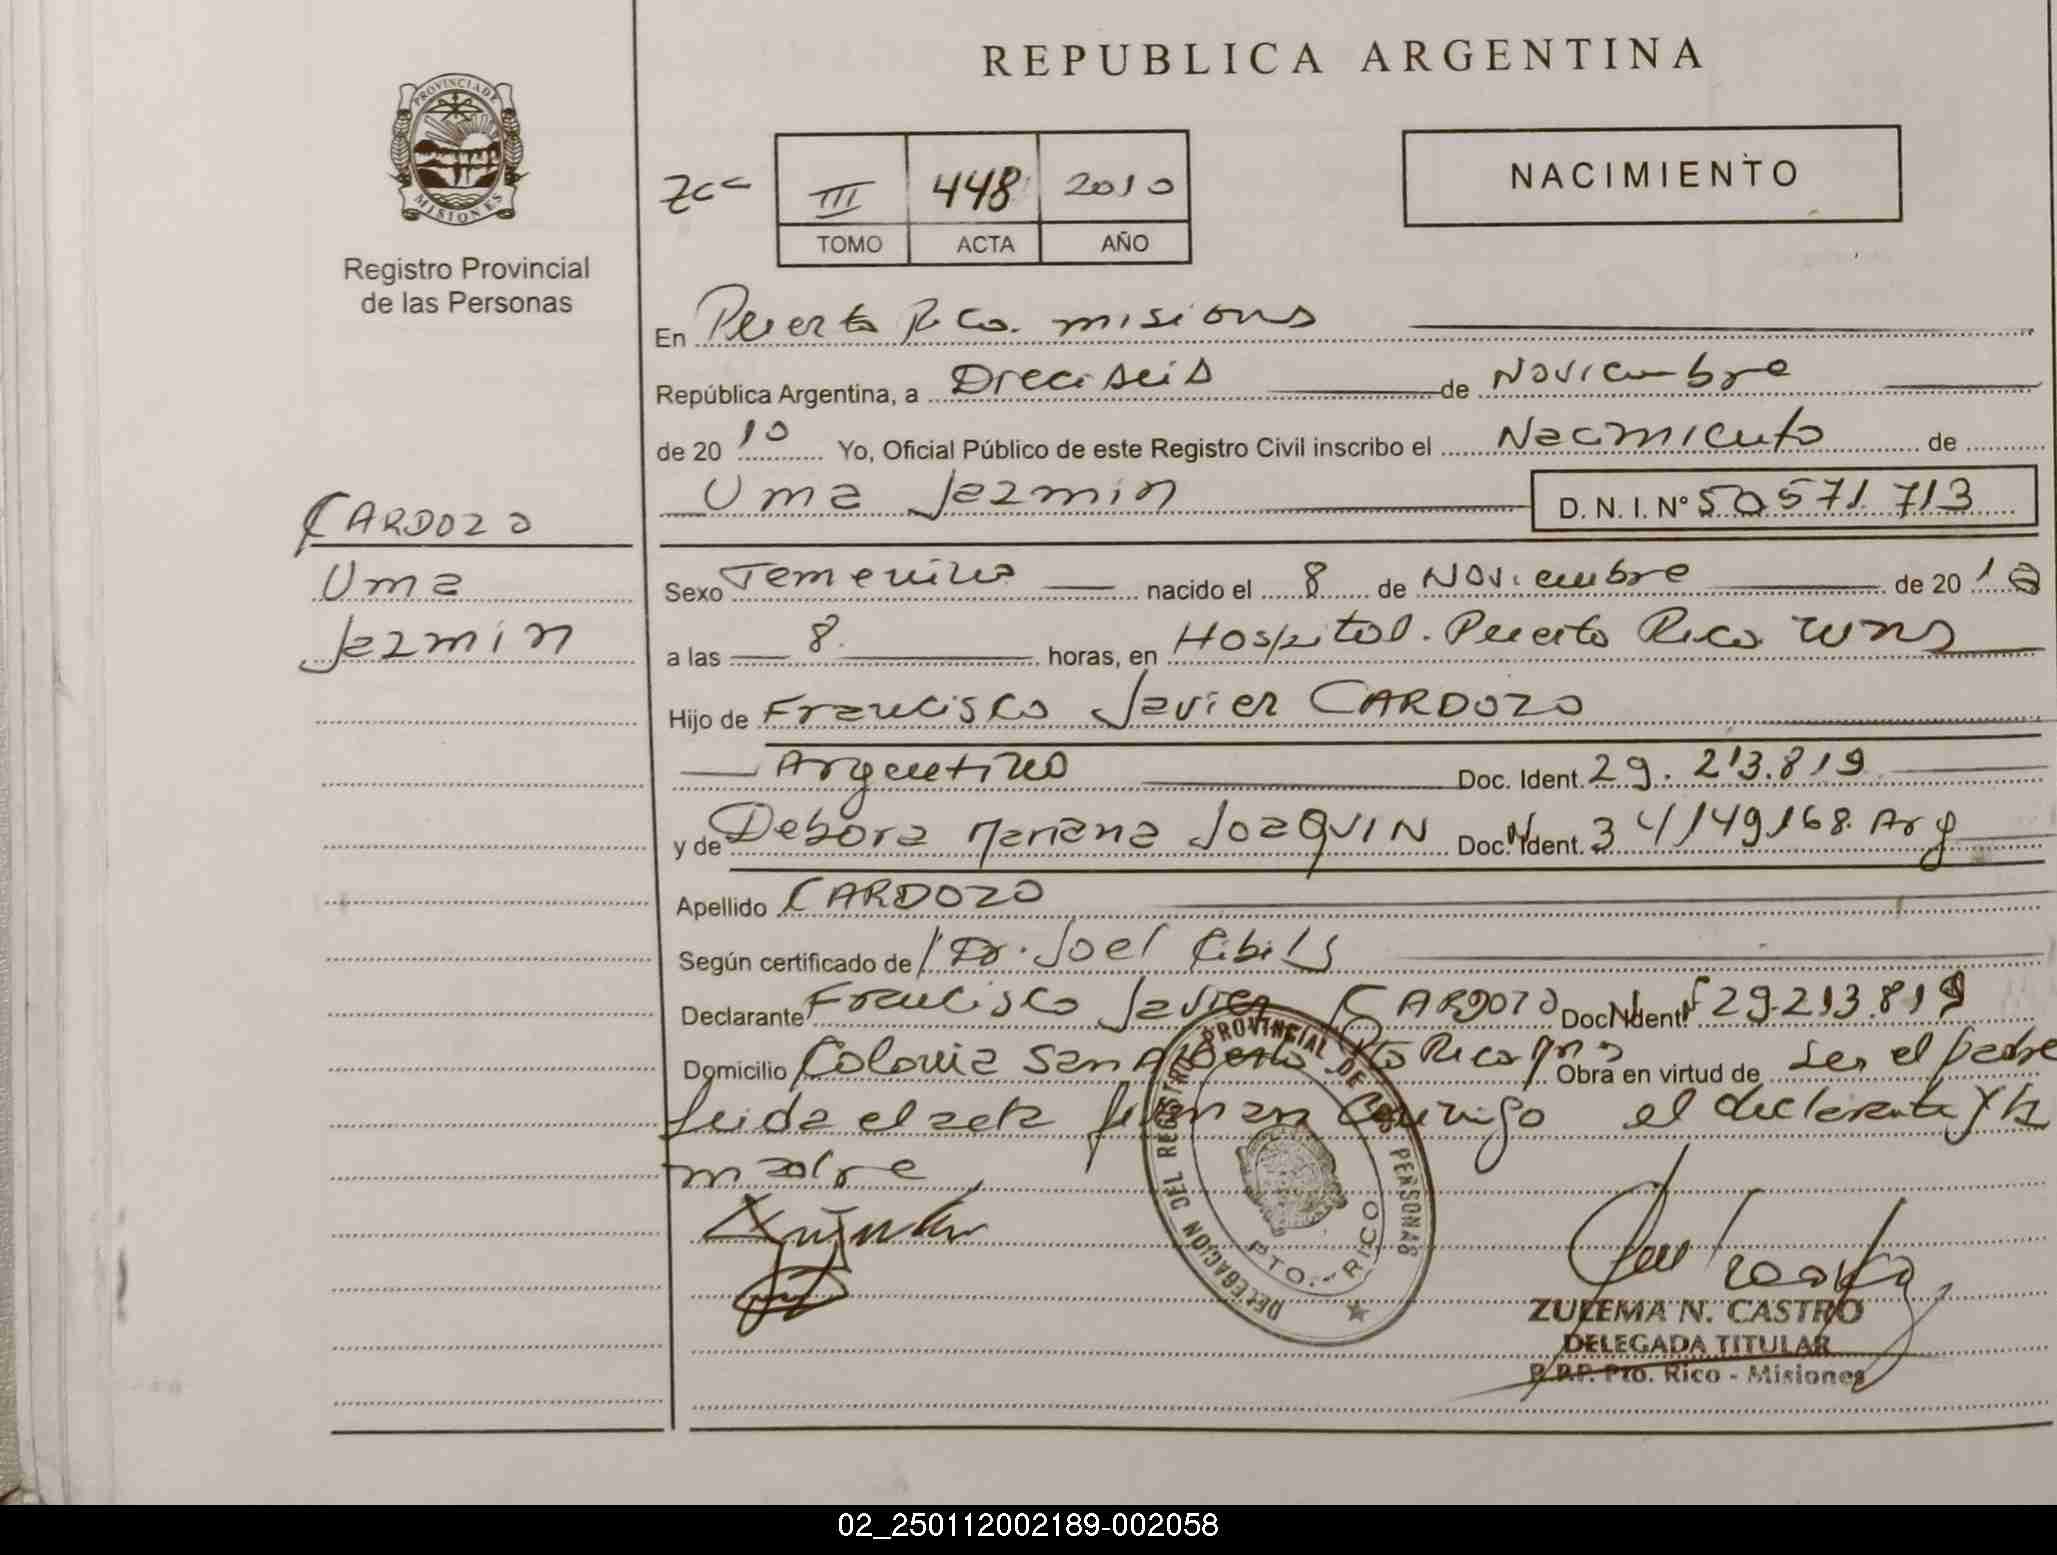 REPUBLICA ARGENTINA
PROVINCIA DE MISIONES
Registro Provincial
de las Personas
III 448 2010
TOMO ACTA AÑO
NACIMIENTO
En Puerto Rico. misiones
República Argentina, a Dieciseis de Noviembre
de 2010 Yo, Oficial Público de este Registro Civil inscribo el Nacimiento de
Uma Jazmin D. N. I. N° 50571.713
CARDOZO
Uma
Jazmin
Sexo Femenino nacido el 8 de Noviembre de 2010
a las 8. horas, en Hospital. Puerto Rico Mnes
Hijo de Francisco Javier CARDOZO
Argentino Doc. Ident. 29.213.819
y de Debora Mariana JoaQUIN Doc. Ident. 34149168. Arg
Apellido CARDOZO
Según certificado de Dr. Joel Cibils
Declarante Francisco Javier CARDOZO Doc. Ident. 29.213.819
Domicilio Colonia San Alberto Pto Rico Mnes Obra en virtud de Ser el padre
Leida el acta firman conmigo el declarante y la
madre
DELEGACION DEL REGISTRO PROVINCIAL DE PERSONAS
PTO. - RICO
ZULEMA N. CASTRO
DELEGADA TITULAR
R.P.P. Pto. Rico - Misiones
02_250112002189-002058